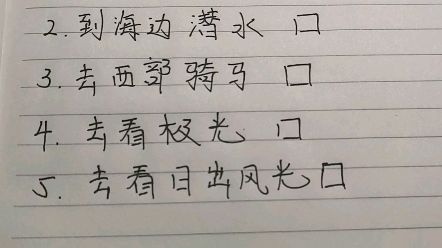 2.到海边潜水 口
3.去西部骑马 口
4.去看极光 口
5.去看日出风光口